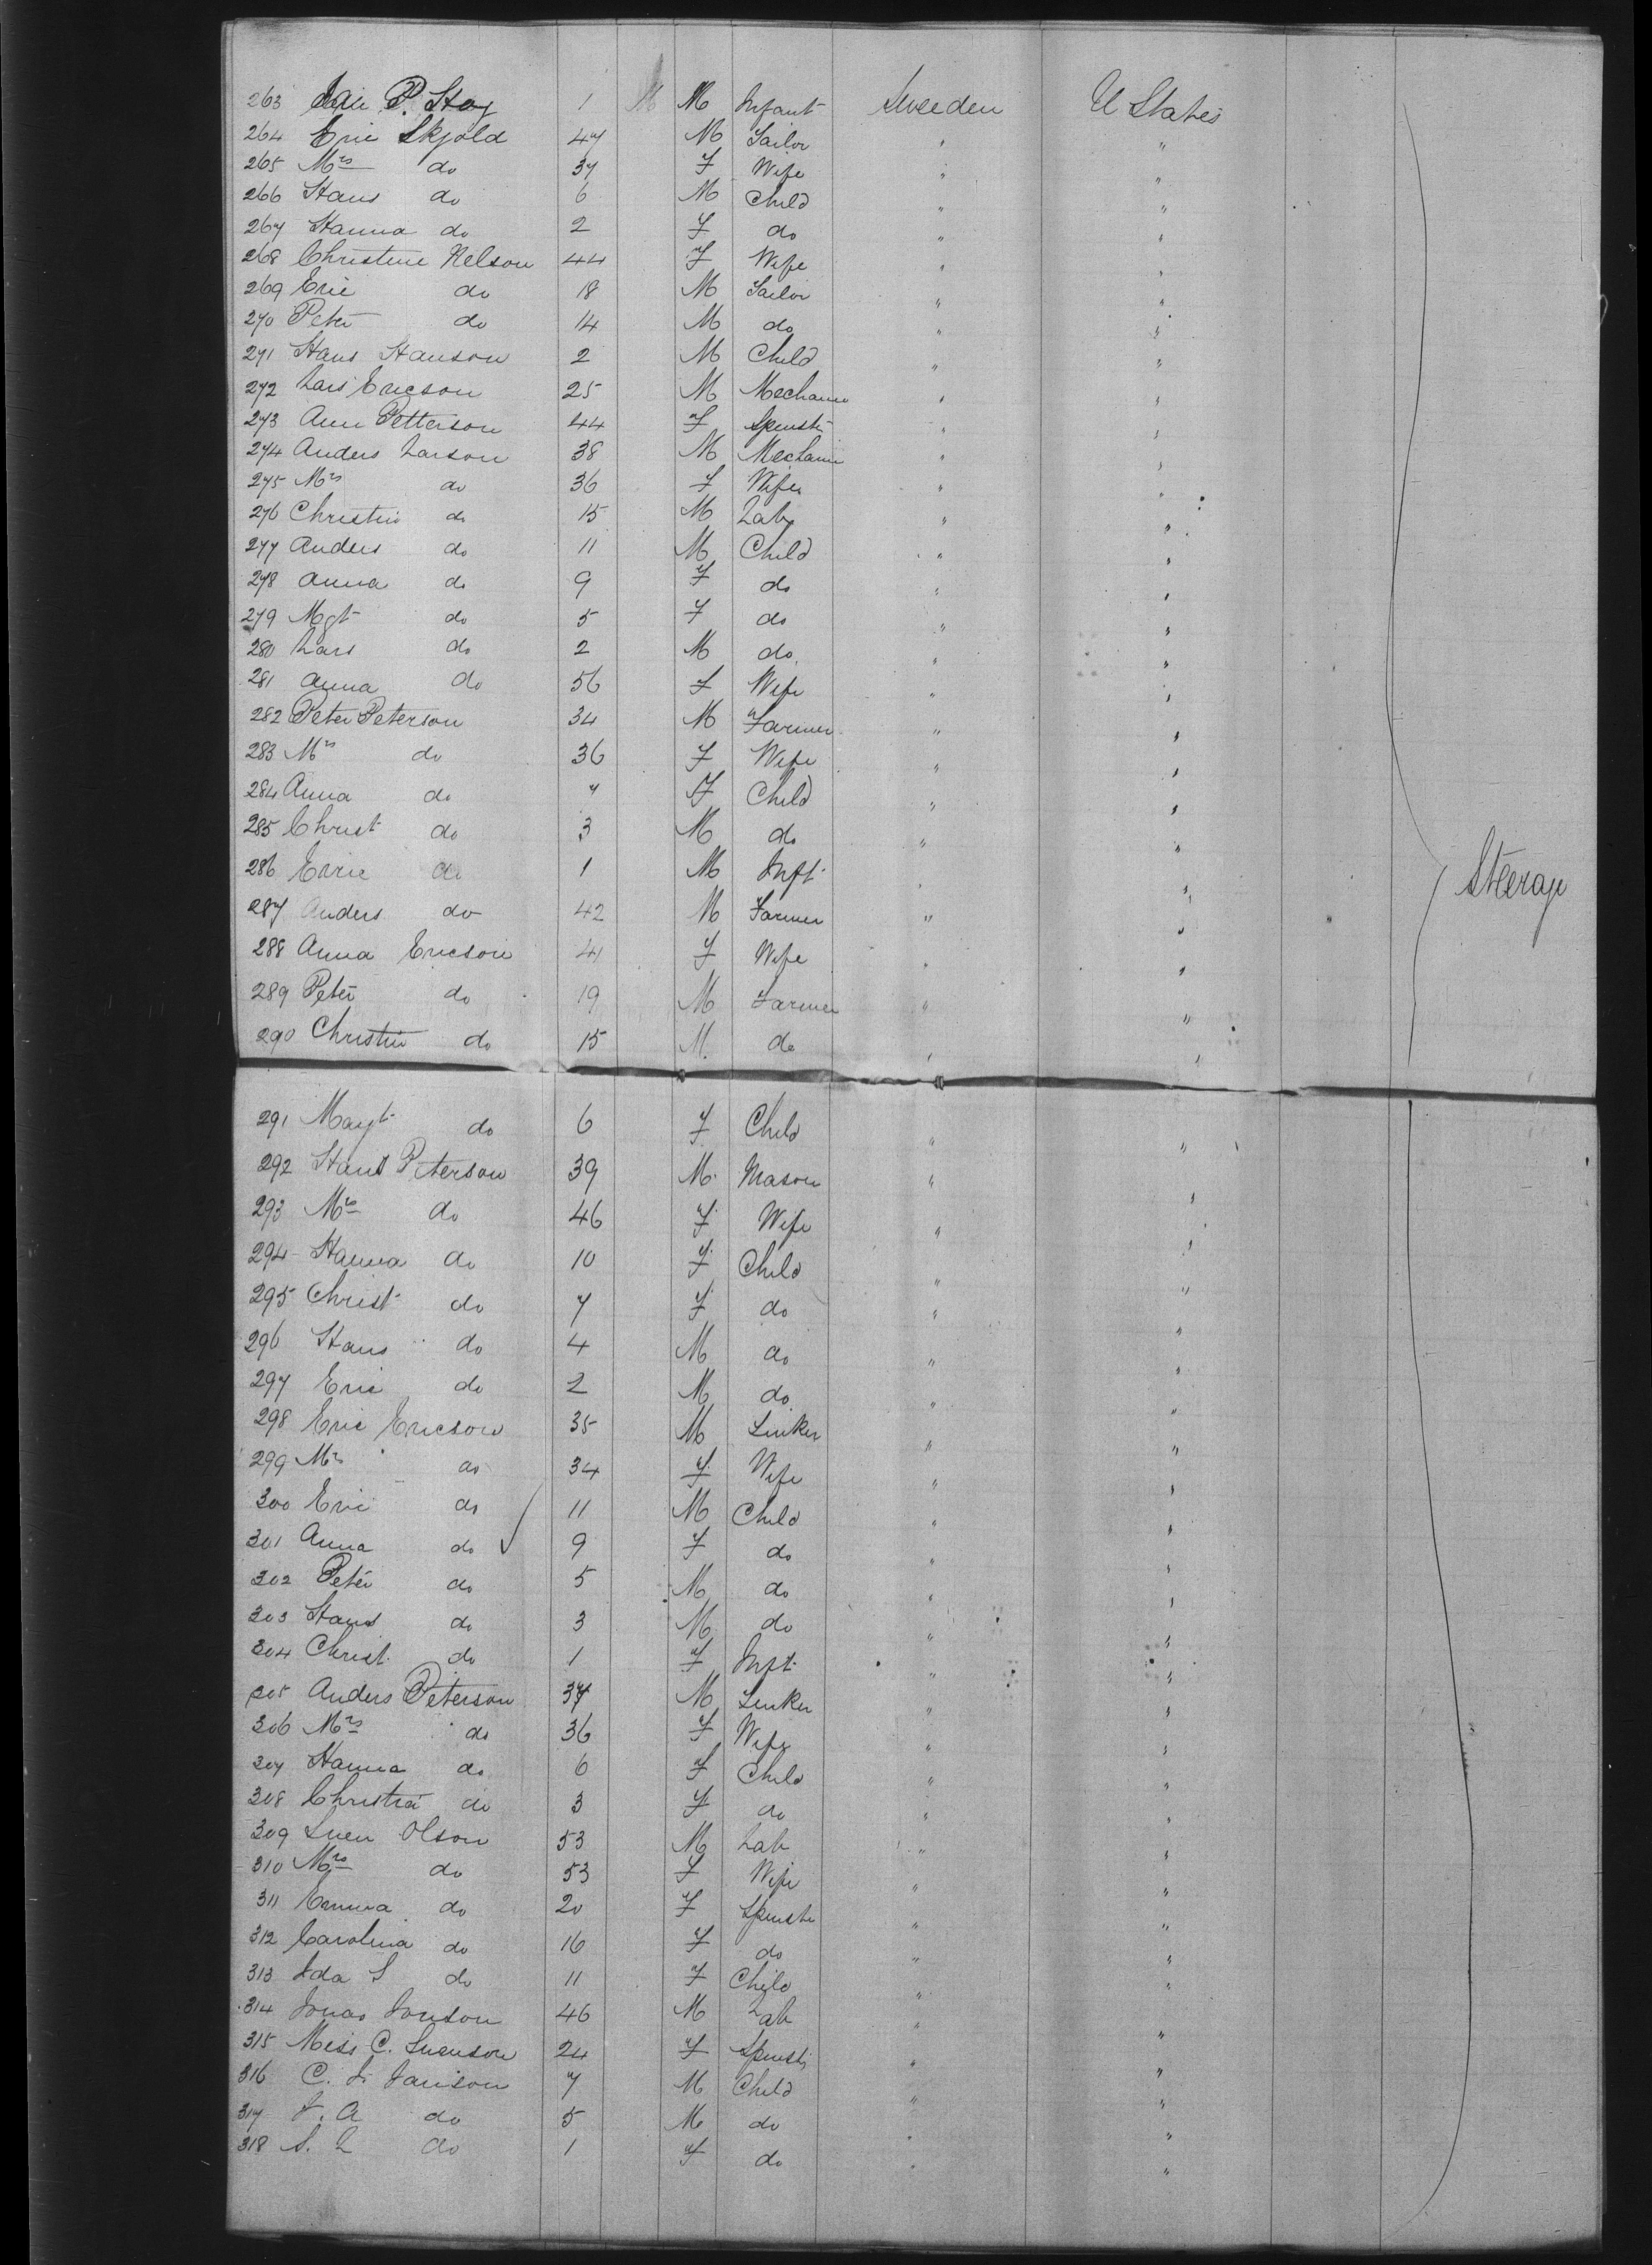 263 P. Hoy 1 M M Infant Sweeden U States
264 Eric Skjold 47 M Sailor " "
265 Mrs do 37 F Wife " "
266 Hans do 6 M Child " "
267 Hanna do 2 F do " "
268 Christine Nelson 44 F Wife " "
269 Eric do 18 M Sailor " "
270 Peter do 14 M do " "
271 Hans Hanson 2 M Child " "
272 Lars Ericson 25 M Mechanic " "
273 Ann Petterson 44 F Spinstr " "
274 Anders Larson 38 M Mechanic " "
275 Mrs do 36 F Wife " "
276 Christin do 15 M Lab " "
277 Anders do 11 M Child " "
278 Anna do 9 F do " "
279 Mgt do 5 F do " "
280 Lars do 2 M do " "
281 Anna do 56 F Wife " "
282 Peter Peterson 34 M Farmer " "
283 Mrs do 36 F Wife " "
284 Anna do 7 F Child " "
285 Christ do 3 M do " "
286 Eric do 1 M Inft " " Steerage
287 Anders do 42 M Farmer " "
288 Anna Ericson 41 F Wife " "
289 Peter do 19 M Farmer " "
290 Christin do 15 M. do " "
291 Mayt do 6 F Child " "
292 Hans Peterson 39 M Mason " "
293 Mrs do 46 F Wife " "
294 Hanna do 10 F Child " "
295 Christ do 7 F do " "
296 Hans do 4 M do " "
297 Eric do 2 M do " "
298 Eric Ericson 35 M " "
299 Mrs do 34 F Wife " "
300 Eric do 11 M Child " "
301 Anna do 9 F do " "
302 Peter do 5 M do " "
303 Hans do 3 M do " "
304 Christ do 1 F Inft " "
305 Anders Peterson 37 M " "
306 Mrs do 36 F Wife " "
307 Hanna do 6 F Child " "
308 Christia do 3 F do " "
309 Sven Olson 53 M Lab " "
310 Mrs do 53 F Wife " "
311 Emma do 20 F Spinstr " "
312 Carolina do 16 F do " "
313 Ida S do 11 F Child " "
314 Jonas Jonson 46 M Lab " "
315 Miss C. Swenson 24 F Spinstr " "
316 C. J. Janison 7 M Child " "
317 J. A do 5 M do " "
318 S. L do 1 F do " "